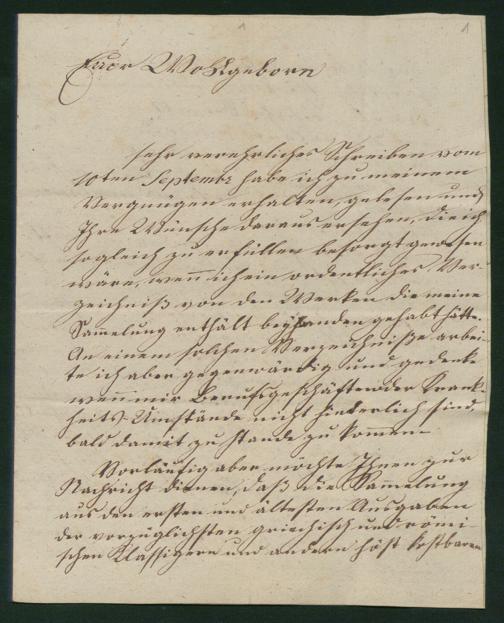 1
1
Euer Wohlgeborn
sehr verehrliches Schreiben vom
10ten Septembr habe ich zu meinem
Vergnügen erhalten, gelesen und
Ihre Wünsche daraus ersehen, die ich
sogleich zu erfüllen besorgt gewesen
wäre, wenn ich ein ordentliches Ver-
zeichniß von den Werken die meine
Sammlung enthält beyhanden gehabt hätte.
An einem solchen Verzeichniße arbei-
te ich aber gegenwärtig und gedenke
wenn mir Berufsgeschäften oder Krank-
heits-Umstände nicht hinderlich sind,
bald damit zu stande zu kommen.
Vorläufig aber möchte Ihnen zur
Nachricht dienen, daß die Sammelung
aus den ersten und ältesten Ausgaben
der vorzüglichsten griechisch und römi-
schen Klassikern und andern höst kostbaren